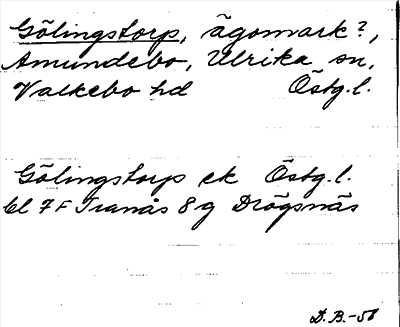 Gölingstorp, ägomark?,
Amundebo, Ulrika sn,
Valkebo hd Östg.l.
Gölingstorp ek Östg.l.
bl 7F Tranås 8g Drögsnäs
D.B.-58